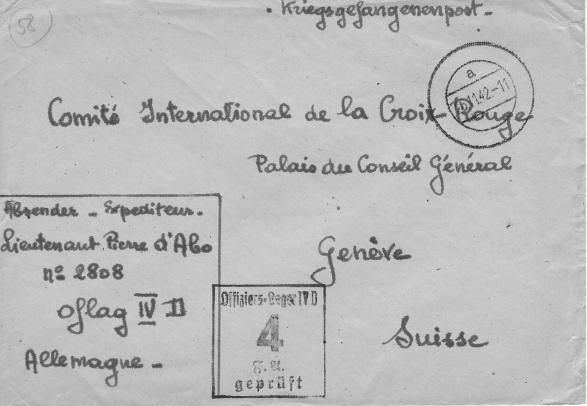 58
Kriegsgefangenenpost-
a
11.42-11
b
Comité International de la Croix-Rouge
Palais du Conseil Général
Genève
Suisse
Absender - Expediteur-
Lieutenant Pierre d'Abo
n° 2808
oflag IV D
Allemagne-
Offiziers-Lager IV D
4
geprüft